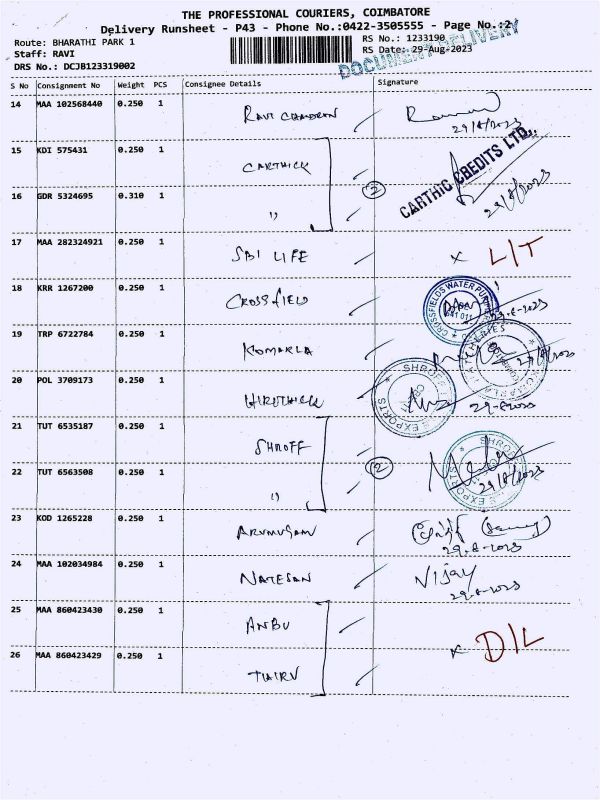 THE PROFESSIONAL COURIERS, COIMBATORE
Delivery Runsheet - P43 - Phone No.:0422-3505555 - Page No.:2
Route: BHARATHI PARK 1
RS No.: 1233190
Staff: RAVI
RS Date: 29-Aug-2023
DRS No.: DCJB123319002
DOCUMENT DELIVERY
S No Consignment No Weight PCS Consignee Details Signature
14 MAA 102568440 0.250 1 RAVI CHANDRAN
29/8/2023
15 KDI 575431 0.250 1 CARTHICK
CARTHIC CREDITS LTD.
16 GDR 5324695 0.310 1 "
2
29/8/2023
17 MAA 282324921 0.250 1 SBI LIFE x L/T
18 KRR 1267200 0.250 1 CROSSFIELD
CROSSFIELDS WATER PUR
29-8-2023
19 TRP 6722784 0.250 1 KOMARLA
29/8/2023
20 POL 3709173 0.250 1 HIRUTHICK
SHROFF
EXPORTS
29-8-2023
21 TUT 6535187 0.250 1 SHROFF
22 TUT 6563508 0.250 1 "
2
29/8/2023
23 KOD 1265228 0.250 1 ARUMUGAM
29-8-2023
24 MAA 102034984 0.250 1 NATESAN Vijay
29-8-2023
25 MAA 860423430 0.250 1 ANBU
x D/L
26 MAA 860423429 0.250 1 THIRU